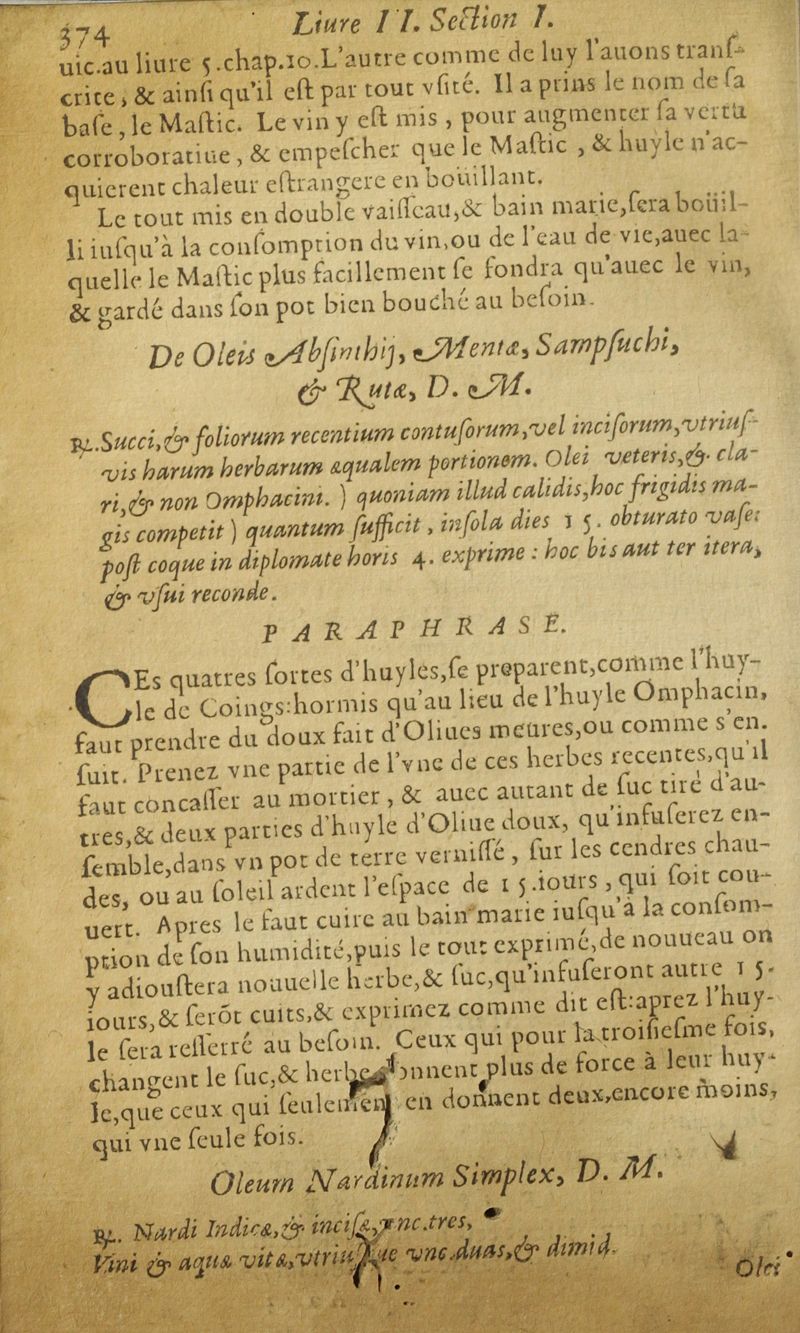 374 Liure II. Section I.
uic.au liure 5.chap.10.L'autre comme de luy l'auons tranſ-
crite, & ainſi qu'il eſt par tout vſité. Il a prins le nom de ſa
baſe, le Maſtic. Le vin y eſt mis, pour augmenter ſa vertu
corroboratiue, & empeſcher que le Maſtic, & huyle n'ac-
quierent chaleur eſtrangere en boüillant.
Le tout mis en double vaiſſeau,& bain marie,ſera boüil-
li iuſqu'à la conſomption du vin,ou de l'eau de vie,auec la-
quelle le Maſtic plus facillement ſe fondra qu'auec le vin,
& gardé dans ſon pot bien bouché au beſoin.
De Oleis Abſinthij, Mentæ, Sampſuchi,
& Rutæ, D. M.
℞.Succi,& foliorum recentium contuſorum,vel inciſorum,vtriuſ-
vis harum herbarum æqualem portionem. Olei veteris,& cla-
ri,& non Omphacini. ) quoniam illud calidis,hoc frigidis ma-
gis competit) quantum ſufficit, inſola dies 15. obturato vaſe:
poſt coque in diplomate horis 4. exprime : hoc bis aut ter itera,
& vſui reconde.
PARAPHRASE.
CEs quatres ſortes d'huyles,ſe preparent,comme l'huy-
le de Coings:hormis qu'au lieu de l'huyle Omphacin,
faut prendre du doux fait d'Oliues meures,ou comme s'en
ſuit. Prenez vne partie de l'vne de ces herbes recentes,qu'il
faut concaſſer au mortier, & auec autant de ſuc tiré d'au-
tres,& deux parties d'huyle d'Oliue doux, qu'infuſerez en-
ſemble,dans vn pot de terre verniſſé, ſur les cendres chau-
des, ou au ſoleil ardent l'eſpace de 15.iours, qui ſoit cou-
uert. Apres le faut cuire au bain marie iuſqu'à la conſom-
ption de ſon humidité,puis le tout exprimé,de nouueau on
y adiouſtera nouuelle herbe,& ſuc,qu'infuſeront autre 15.
iours,& ſerõt cuits,& exprimez comme dit eſt:aprez l'huy-
le ſera reſſerré au beſoin. Ceux qui pour la troiſieſme fois,
changent le ſuc,& herbe donnent plus de force à leur huy-
le,que ceux qui ſeulement en donnent deux,encore moins,
qui vne ſeule fois.
Oleum Nardinum Simplex, D. M.
℞. Nardi Indicæ,& inciſæ,vnc.tres,
Vini & aquæ vitæ,vtriuſque vnc.duas,& dimid.
Olei